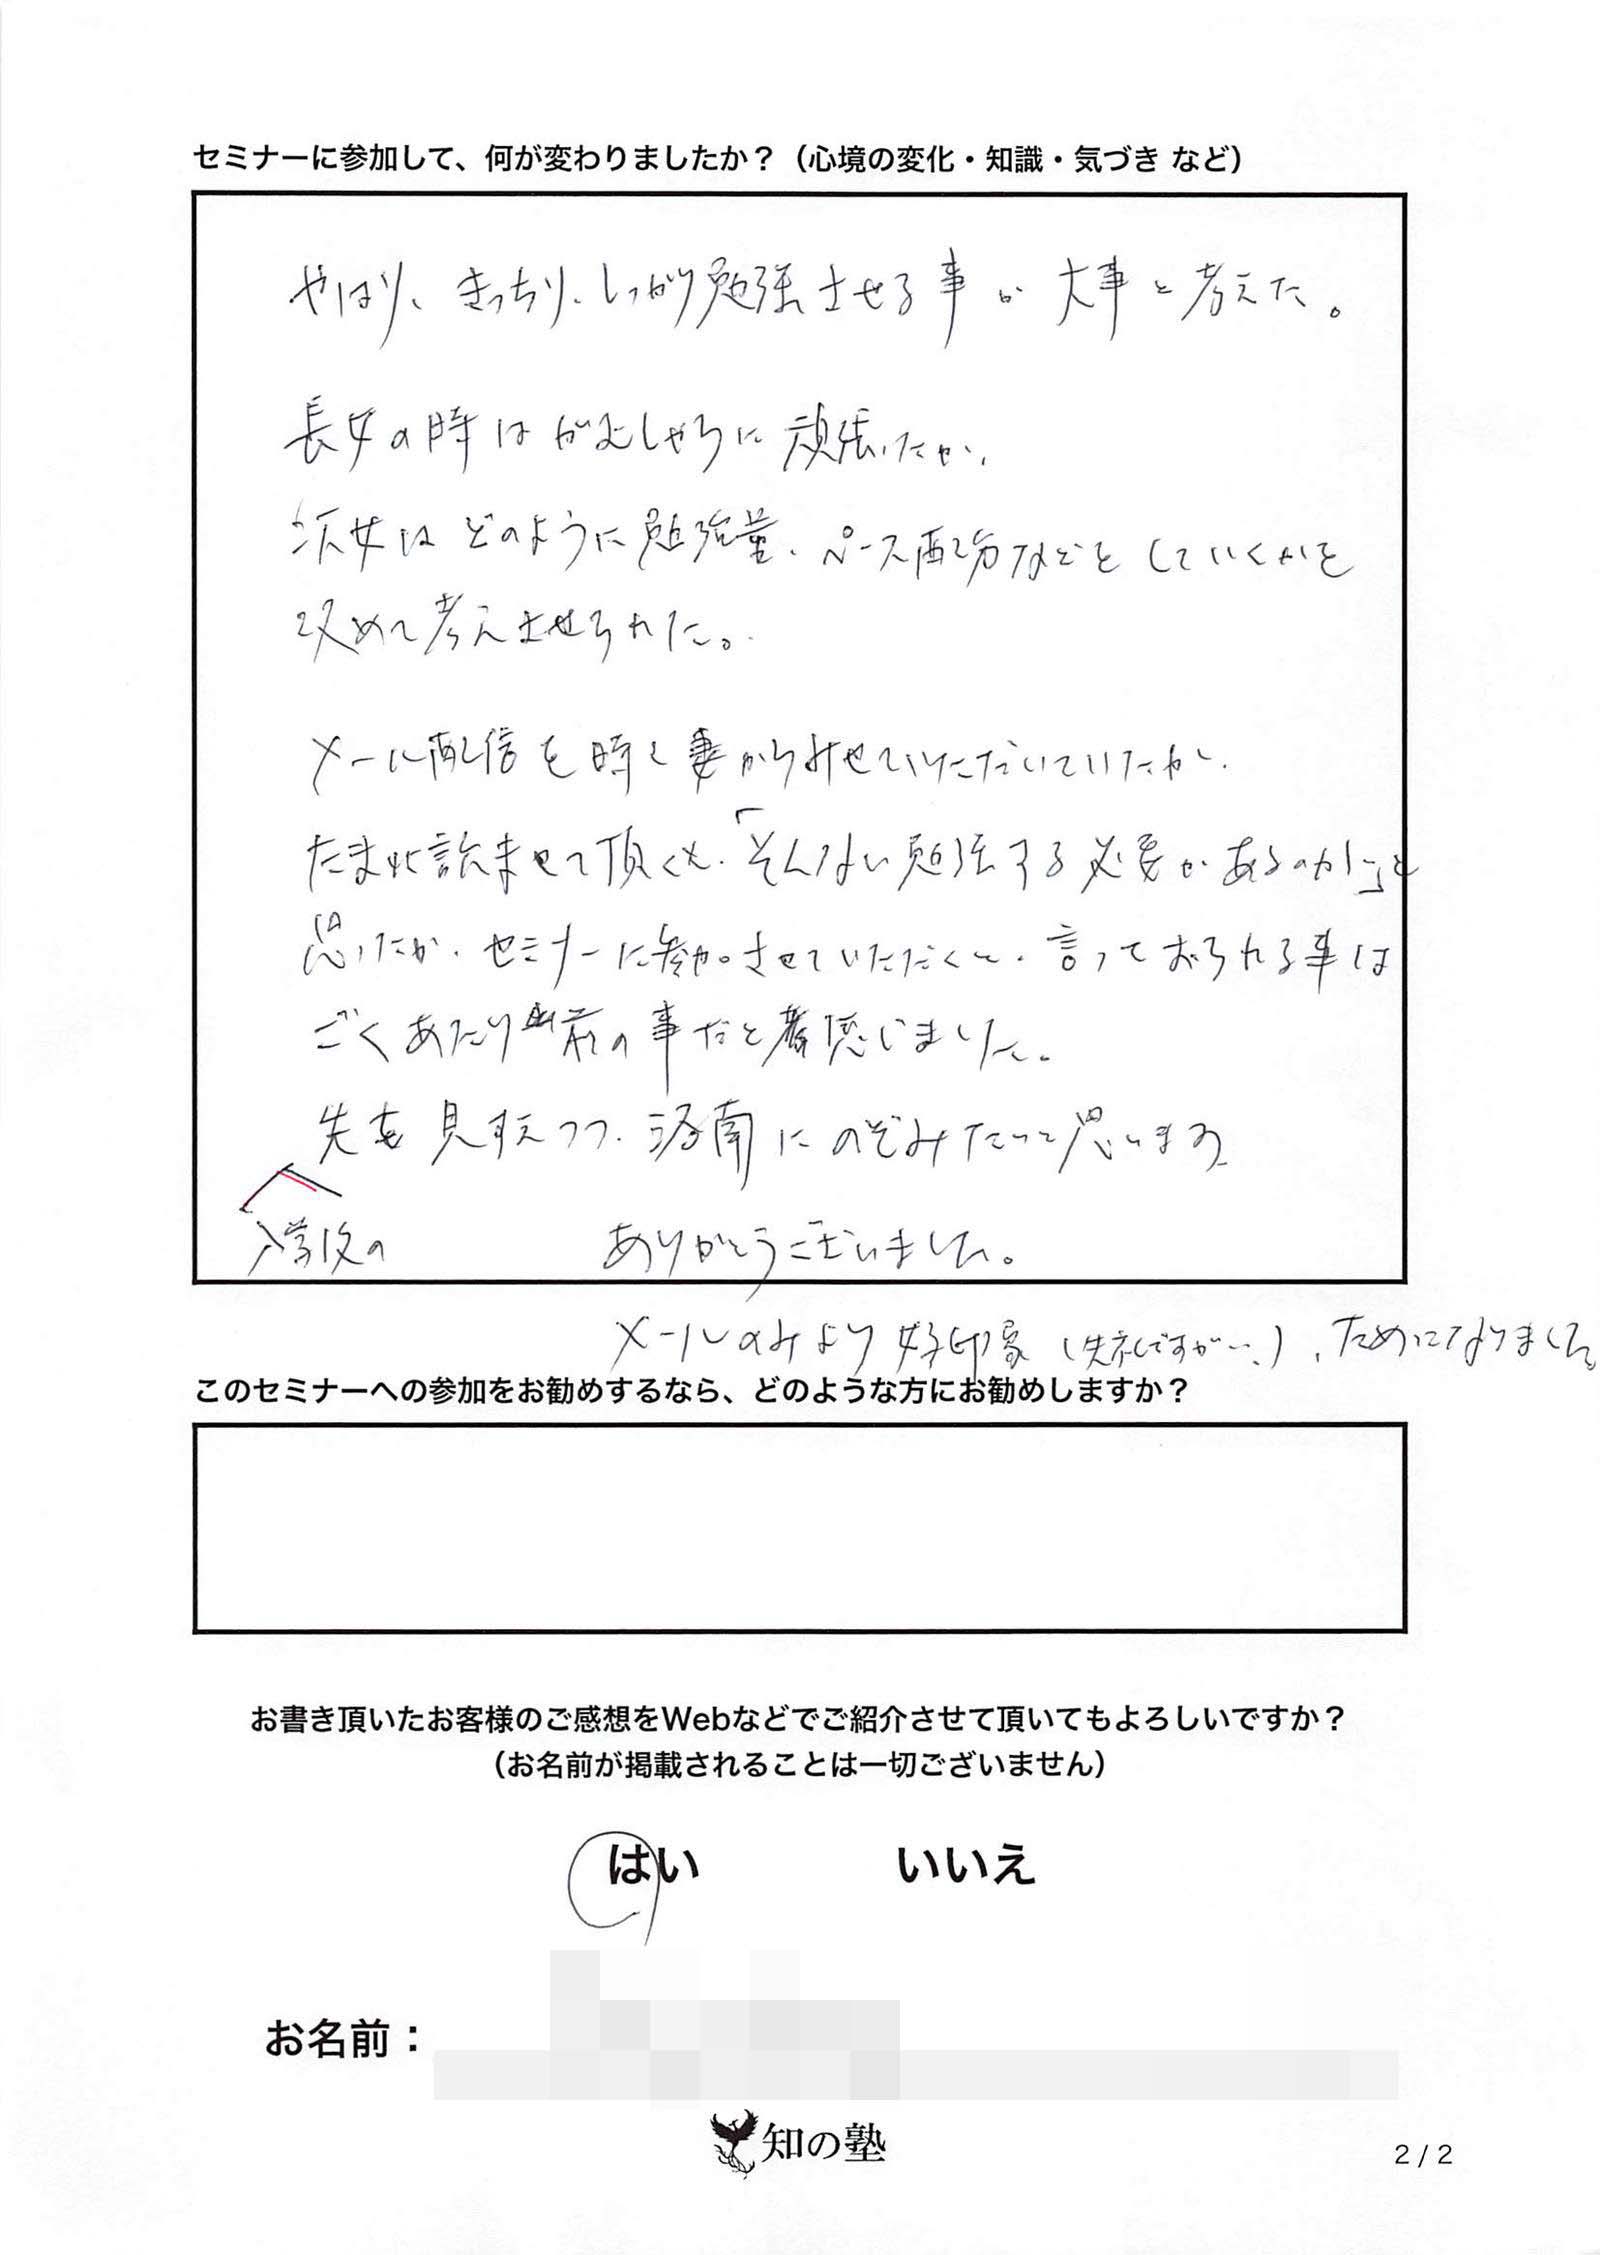 セミナーに参加して、何が変わりましたか？（心境の変化・知識・気づき など）
やはり、きっちり、しっかり勉強させる事が大事と考えた。
長女の時はがむしゃらに頑張ったが、
次女はどのように勉強量、ペース配分などをしていくかを
改めて考えさせられた。
メール配信を時々妻からみせていただいていたが、
たまに読ませて頂くと、「そんなに勉強する必要があるのか」と
思ったが、セミナーに参加させていただくと、言っておられる事は
ごくあたり前の事だと感じました。
先を見すえつつ、洛南にのぞみたいと思います
入学後の
ありがとうございました。
メールのみより好印象（失礼ですが…）、ためになりました。
このセミナーへの参加をお勧めするなら、どのような方にお勧めしますか？
お書き頂いたお客様のご感想をWebなどでご紹介させて頂いてもよろしいですか？
（お名前が掲載されることは一切ございません）
はい いいえ
お名前：
知の塾
2 / 2